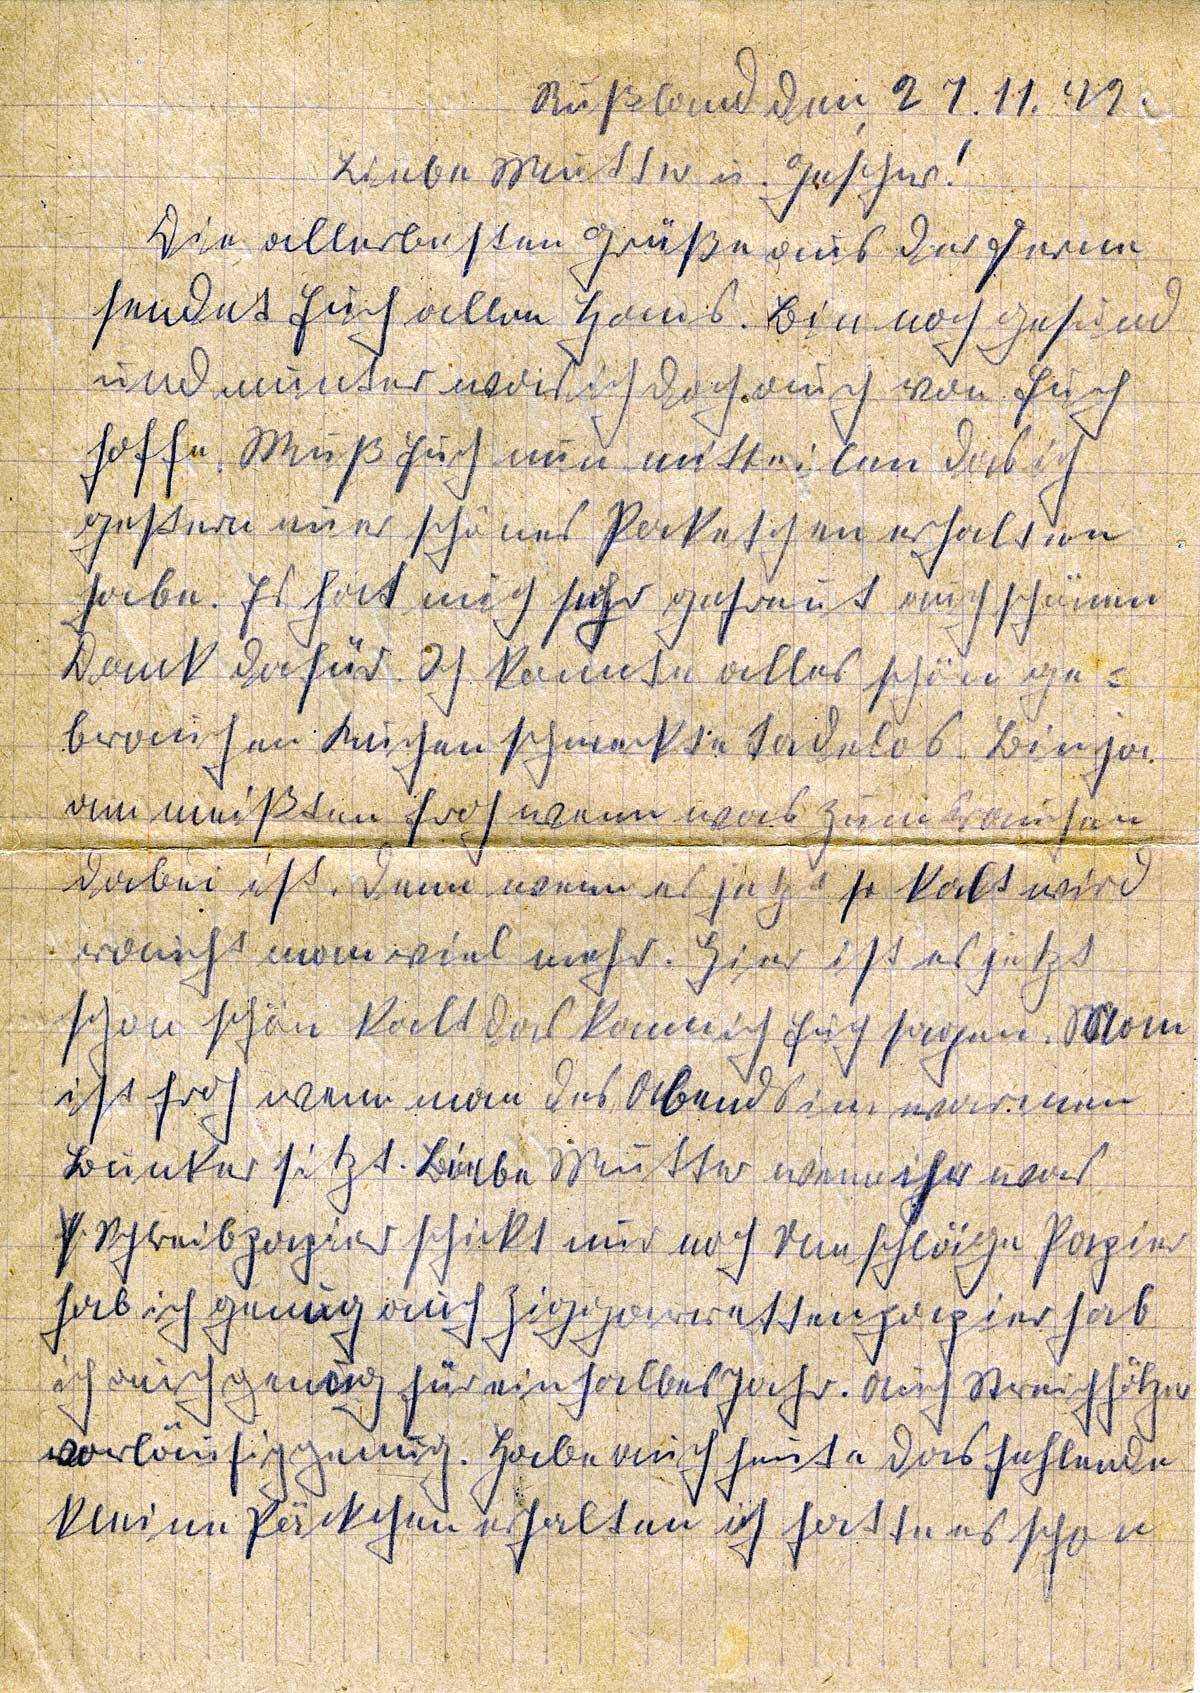 Rußland den 27.11.42.
Liebe Mutter u. Geschw!
Die allerbesten Grüße aus der Ferne
sendet Euch allen Hans. Bin noch gesund
und munter was ich doch auch von Euch
hoffe. Muß Euch nun mitteilen das ich
gestern euer schönes Paketchen erhalten
habe. Es hat mich sehr gefreut auch schönen
Dank dafür. Ich konnte alles schön ge=
brauchen Kuchen schmeckte tadelos. Bin ja
am meißten froh wenn was zum brauchen
dabei ist. Denn wenn es jetzt so kalt wird
raucht man viel mehr. Hier ist es jetzt
schon schön kalt das kann ich Euch sagen. Man
ist froh wenn man des Abends im warmen
Bunker sitzt. Liebe Mutter wenn ihr was
Schreibpapier schickt nur noch Umschläge Papier
hab ich genug auch Ziggarrettenpapier hab
ich auch genug für ein halbes Jahr. Auch Streichhölzer
vorläufig genug. Habe auch heute das fehlende
kleine Päckchen erhalten ich hatte es schon